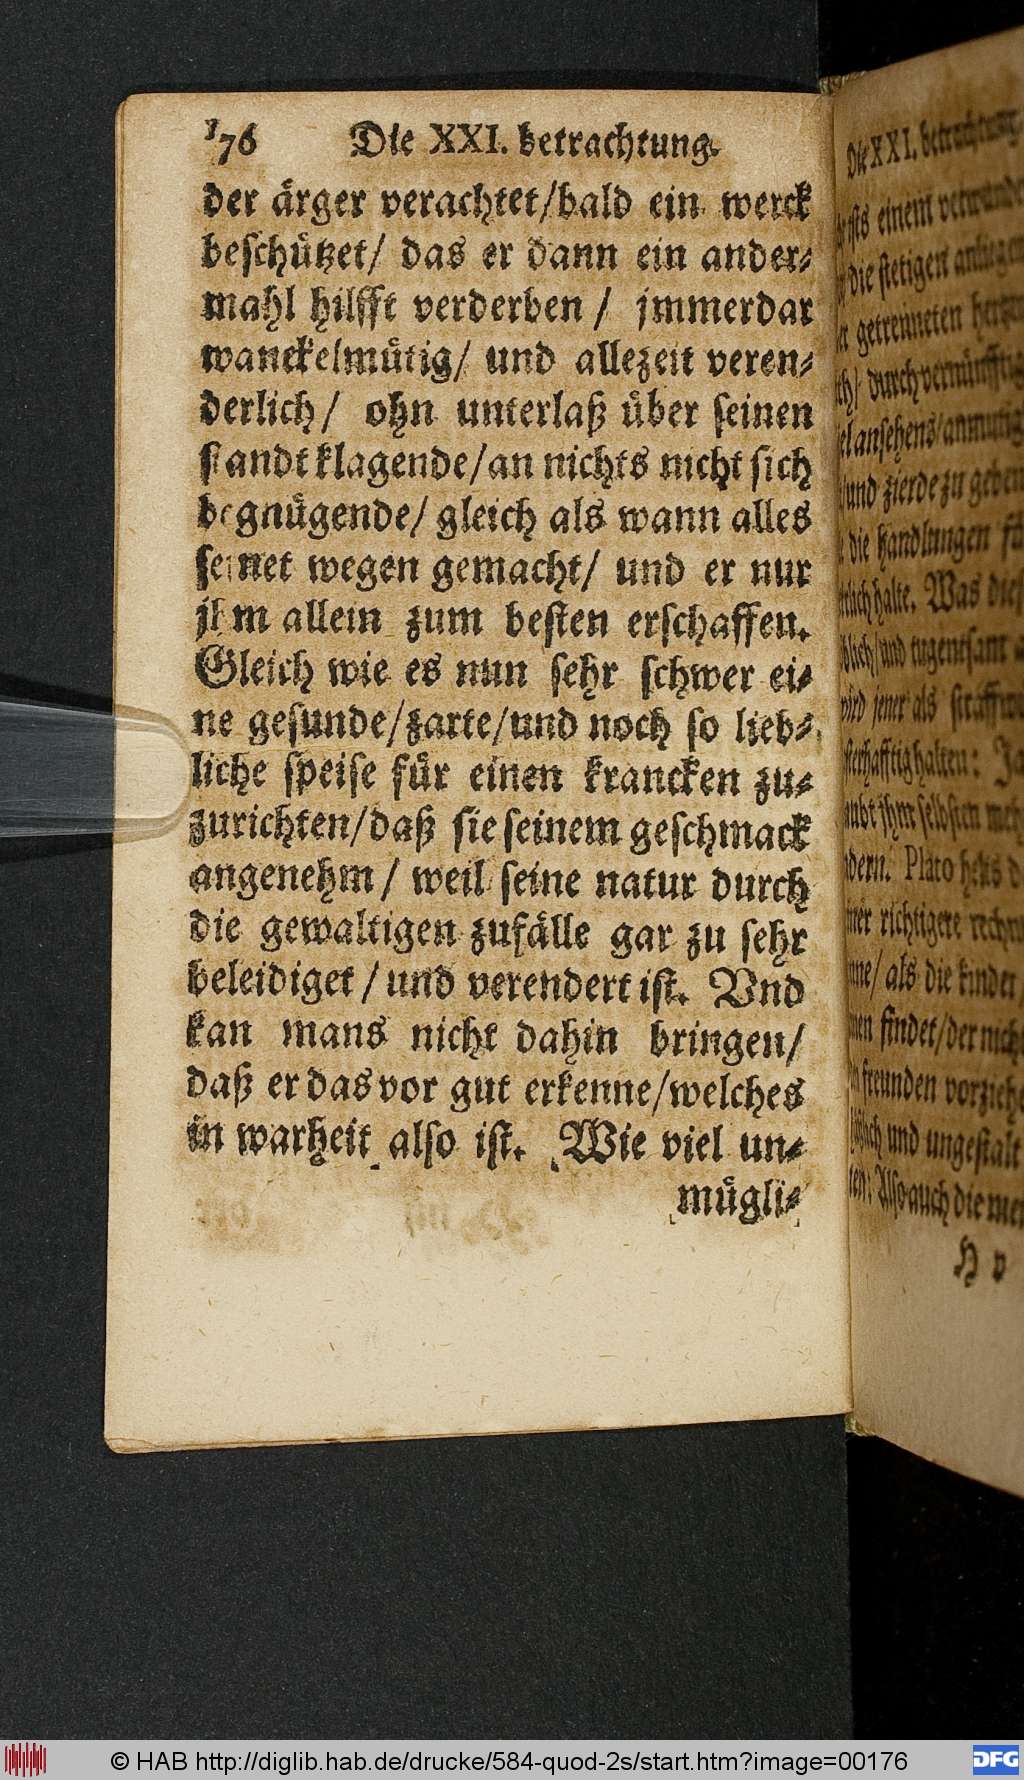 176 Die XXI. betrachtung.
der ärger verachtet/bald ein werck
beschützet/ das er dann ein ander-
mahl hilfft verderben / jmmerdar
wanckelmütig/ und allezeit veren-
derlich/ ohn unterlaß über seinen
standt klagende/an nichts nicht sich
begnügende/ gleich als wann alles
seinet wegen gemacht/ und er nur
jhm allein zum besten erschaffen.
Gleich wie es nun sehr schwer ei-
ne gesunde/zarte/und noch so lieb-
liche speise für einen krancken zu-
zurichten/daß sie seinem geschmack
angenehm / weil seine natur durch
die gewaltigen zufälle gar zu sehr
beleidiget / und verendert ist. Vnd
kan mans nicht dahin bringen/
daß er das vor gut erkenne/welches
in warheit also ist. Wie viel un-
mügli-
Die XXI. betrachtung.
einem
die stetigen
getrenneten
durch
ansehens/anmutig
und zierde zu geben
die handlungen
halte. Was
und tugentsam
jener als
halten: Ja
ihm selbsten
Plato
richtigere
als die kinder
findet/der nicht
freunden vorziehe
und ungestalt
Also auch die
H v
© HAB http://diglib.hab.de/drucke/584-quod-2s/start.htm?image=00176
DFG